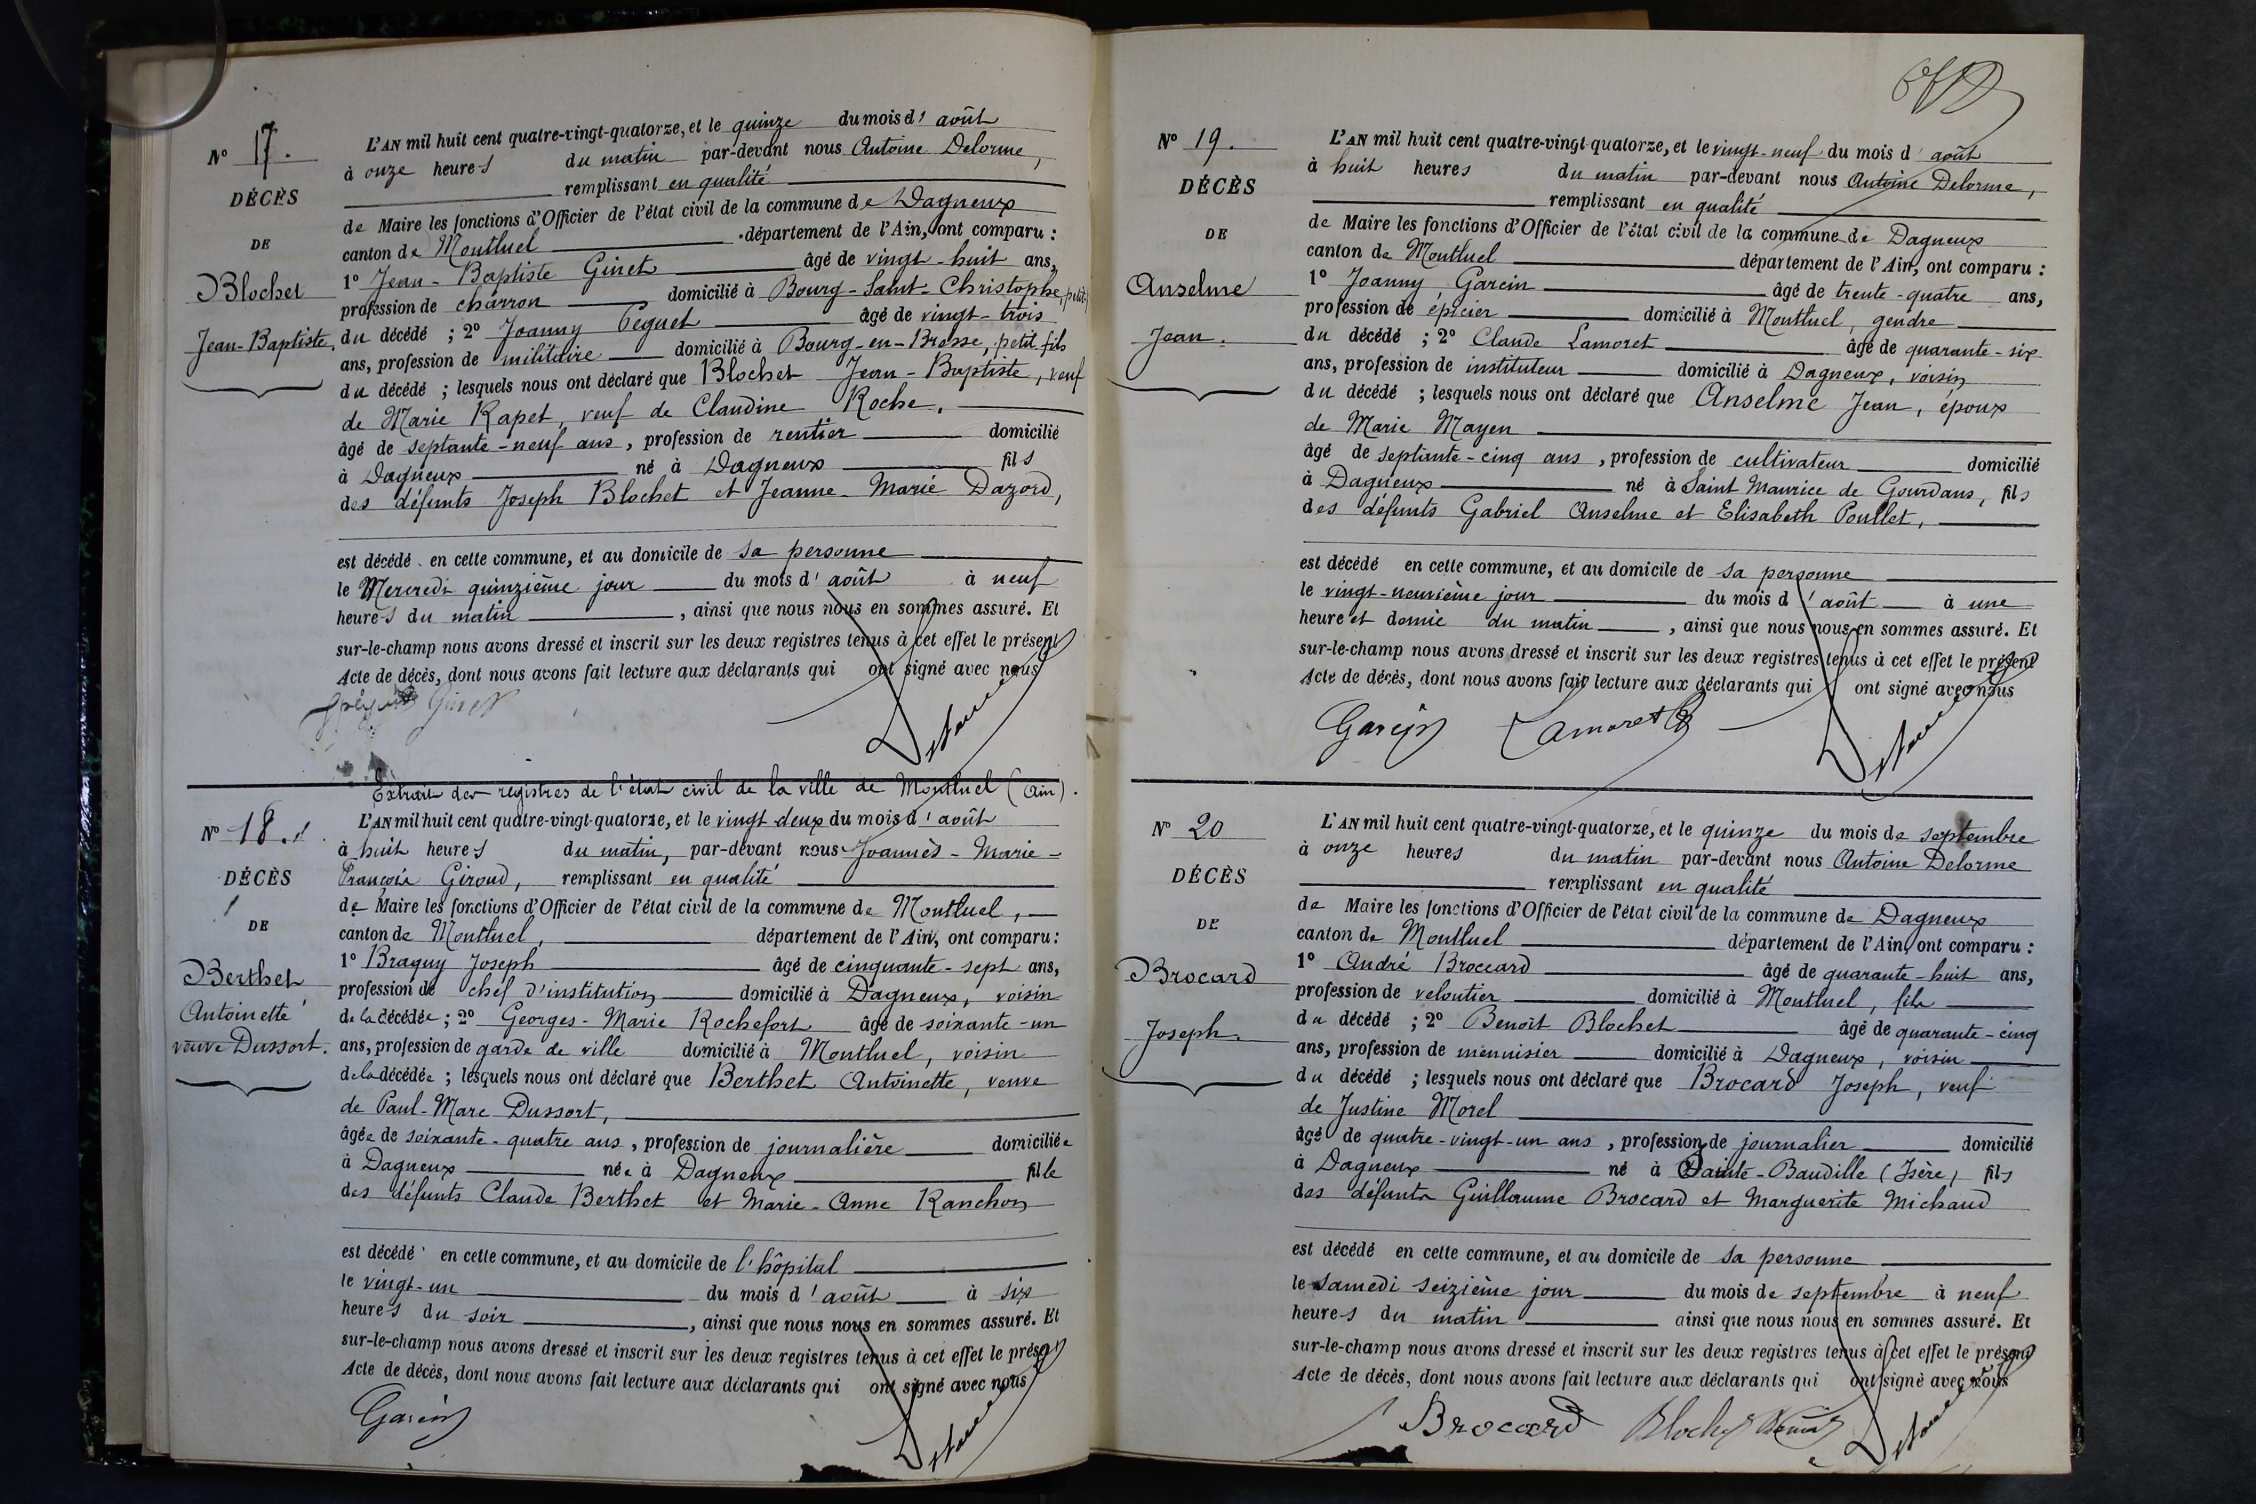 N° 17.
DÉCÈS
DE
Blochet
Jean-Baptiste.
L'AN mil huit cent quatre-vingt-quatorze, et le quinze du mois d'août
à onze heures du matin par-devant nous Antoine Delorme,
remplissant en qualité
de Maire les fonctions d'Officier de l'état civil de la commune de Dagneux
canton de Montluel département de l'Ain, ont comparu :
1° Jean-Baptiste Ginet âgé de vingt-huit ans,
profession de charron domicilié à Bourg-Saint-Christophe, petit-fils
du décédé ; 2° Joanny Peguet âgé de vingt-trois
ans, profession de militaire domicilié à Bourg-en-Bresse, petit-fils
du décédé ; lesquels nous ont déclaré que Blochet Jean-Baptiste, veuf
de Marie Rapet, veuf de Claudine Roche,
âgé de septante-neuf ans, profession de rentier domicilié
à Dagneux né à Dagneux fils
des défunts Joseph Blochet et Jeanne-Marie Dazord,
est décédé en cette commune, et au domicile de sa personne
le Mercredi quinzième jour du mois d'août à neuf
heures du matin, ainsi que nous nous en sommes assuré. Et
sur-le-champ nous avons dressé et inscrit sur les deux registres tenus à cet effet le présent
Acte de décès, dont nous avons fait lecture aux déclarants qui ont signé avec nous
Ginet Delorme
Extrait des registres de l'état civil de la ville de Montluel (Ain).
N° 18.
DÉCÈS
DE
Berthet
Antoinette
veuve Dussort.
L'AN mil huit cent quatre-vingt-quatorze, et le vingt deux du mois d'août
à huit heures du matin, par-devant nous Joannès-Marie-
François Giroud, remplissant en qualité
de Maire les fonctions d'Officier de l'état civil de la commune de Montluel,
canton de Montluel, département de l'Ain, ont comparu :
1° Braguy Joseph âgé de cinquante-sept ans,
profession de chef d'institution domicilié à Dagneux, voisin
de la décédée ; 2° Georges-Marie Rochefort âgé de soixante-un
ans, profession de garde de ville domicilié à Montluel, voisin
de la décédée ; lesquels nous ont déclaré que Berthet Antoinette, veuve
de Paul-Marc Dussort,
âgée de soixante-quatre ans, profession de journalière domiciliée
à Dagneux née à Dagneux fille
des défunts Claude Berthet et Marie-Anne Ranchon
est décédé en cette commune, et au domicile de l'hôpital
le vingt-un du mois d'août à six
heures du soir, ainsi que nous nous en sommes assuré. Et
sur-le-champ nous avons dressé et inscrit sur les deux registres tenus à cet effet le présent
Acte de décès, dont nous avons fait lecture aux déclarants qui ont signé avec nous
Garein Delorme
N° 19.
DÉCÈS
DE
Anselme
Jean.
L'AN mil huit cent quatre-vingt-quatorze, et le vingt-neuf du mois d'août
à huit heures du matin par-devant nous Antoine Delorme,
remplissant en qualité
de Maire les fonctions d'Officier de l'état civil de la commune de Dagneux
canton de Montluel département de l'Ain, ont comparu :
1° Joanny Garein âgé de trente-quatre ans,
profession de épicier domicilié à Montluel, gendre
du décédé ; 2° Claude Lamoret âgé de quarante-six
ans, profession de instituteur domicilié à Dagneux, voisin
du décédé ; lesquels nous ont déclaré que Anselme Jean, époux
de Marie Mayen
âgé de septante-cinq ans, profession de cultivateur domicilié
à Dagneux né à Saint Maurice de Gourdans, fils
des défunts Gabriel Anselme et Elisabeth Poullet,
est décédé en cette commune, et au domicile de sa personne
le vingt-neuvième jour du mois d'août à une
heure et demie du matin, ainsi que nous nous en sommes assuré. Et
sur-le-champ nous avons dressé et inscrit sur les deux registres tenus à cet effet le présent
Acte de décès, dont nous avons fait lecture aux déclarants qui ont signé avec nous
Garein Lamoret Delorme
N° 20
DÉCÈS
DE
Brocard
Joseph.
L'AN mil huit cent quatre-vingt-quatorze, et le quinze du mois de septembre
à onze heures du matin par-devant nous Antoine Delorme
remplissant en qualité
de Maire les fonctions d'Officier de l'état civil de la commune de Dagneux
canton de Montluel département de l'Ain, ont comparu :
1° André Broccard âgé de quarante-huit ans,
profession de veloutier domicilié à Montluel, fils
du décédé ; 2° Benoît Blochet âgé de quarante-cinq
ans, profession de menuisier domicilié à Dagneux, voisin
du décédé ; lesquels nous ont déclaré que Brocard Joseph, veuf
de Justine Morel
âgé de quatre-vingt-un ans, profession de journalier domicilié
à Dagneux né à Sainte-Baudille (Isère) fils
des défunts Guillaume Brocard et Marguerite Michaud
est décédé en cette commune, et au domicile de sa personne
le samedi seizième jour du mois de septembre à neuf
heures du matin ainsi que nous nous en sommes assuré. Et
sur-le-champ nous avons dressé et inscrit sur les deux registres tenus à cet effet le présent
Acte de décès, dont nous avons fait lecture aux déclarants qui ont signé avec nous
Brocard Blochet Benoit Delorme